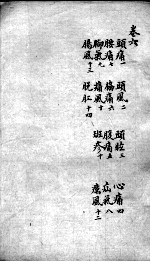 卷六
頭痛一 頭風二 頭眩三 心痛四
腰痛 脇痛六 腹痛五 疝氣八
脚氣九 痛風十 斑疹
腸風 脫肛十四 癘風十二